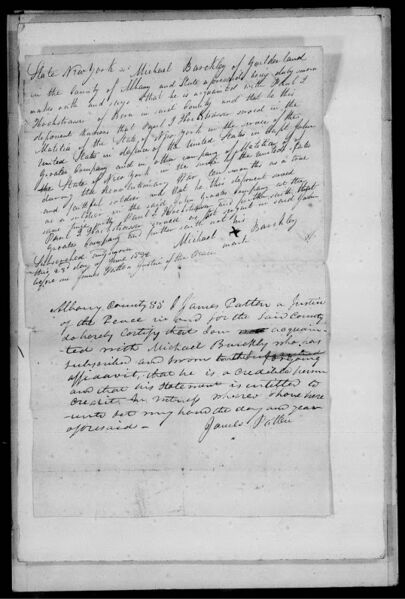 State New York ss Michael Barckley of Guilderland
in the County of Albany and State aforesaid being duly sworn
maketh oath and says that he is acquainted with Paul I
Hochstrasser of Bern in said County and that he this
deponent knows that Paul I Hochstrasser served in the
Militia of the State of New York in the service of the
United States in defence of the United States in Capt John
Groates Company and in other company of Militia of
the State of New York in the service of the United States
during the Revolutionary War ten months as a true
and faithful soldier and that he this deponent served
as a soldier in the said John Groates Company at the
same time with Paul I Hochstrasser and further saith that
Paul I Hochstrasser served as in said John
Groates Company and further saith not
Subscribed and sworn
this 23d day of June 1832
before me James Patten Justice of the Peace
Michael X Barckley
mark
Albany County SS I James Patten a Justice
of the Peace in and for the Said County
do hereby certify that I am acquain
ted with Michael Barckley who has
subscribed and sworn going
affidavit, that he is a credible person
and that his statement is entitled to
credit. In witness whereof I have here
unto set my hand the day and year
aforesaid -
James Patten